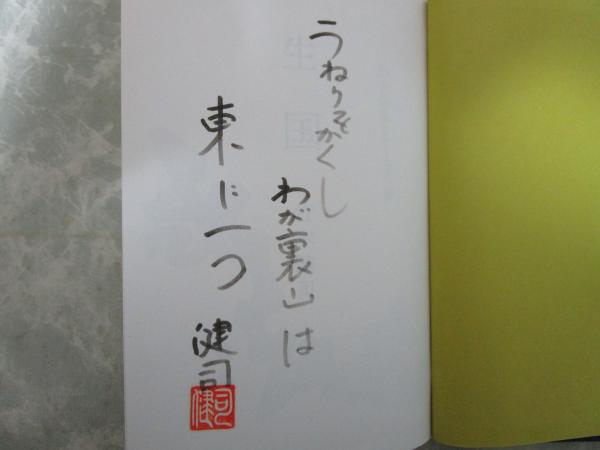 うねりをかくし
わが裏山は
東に一つ
健司
健司
生国